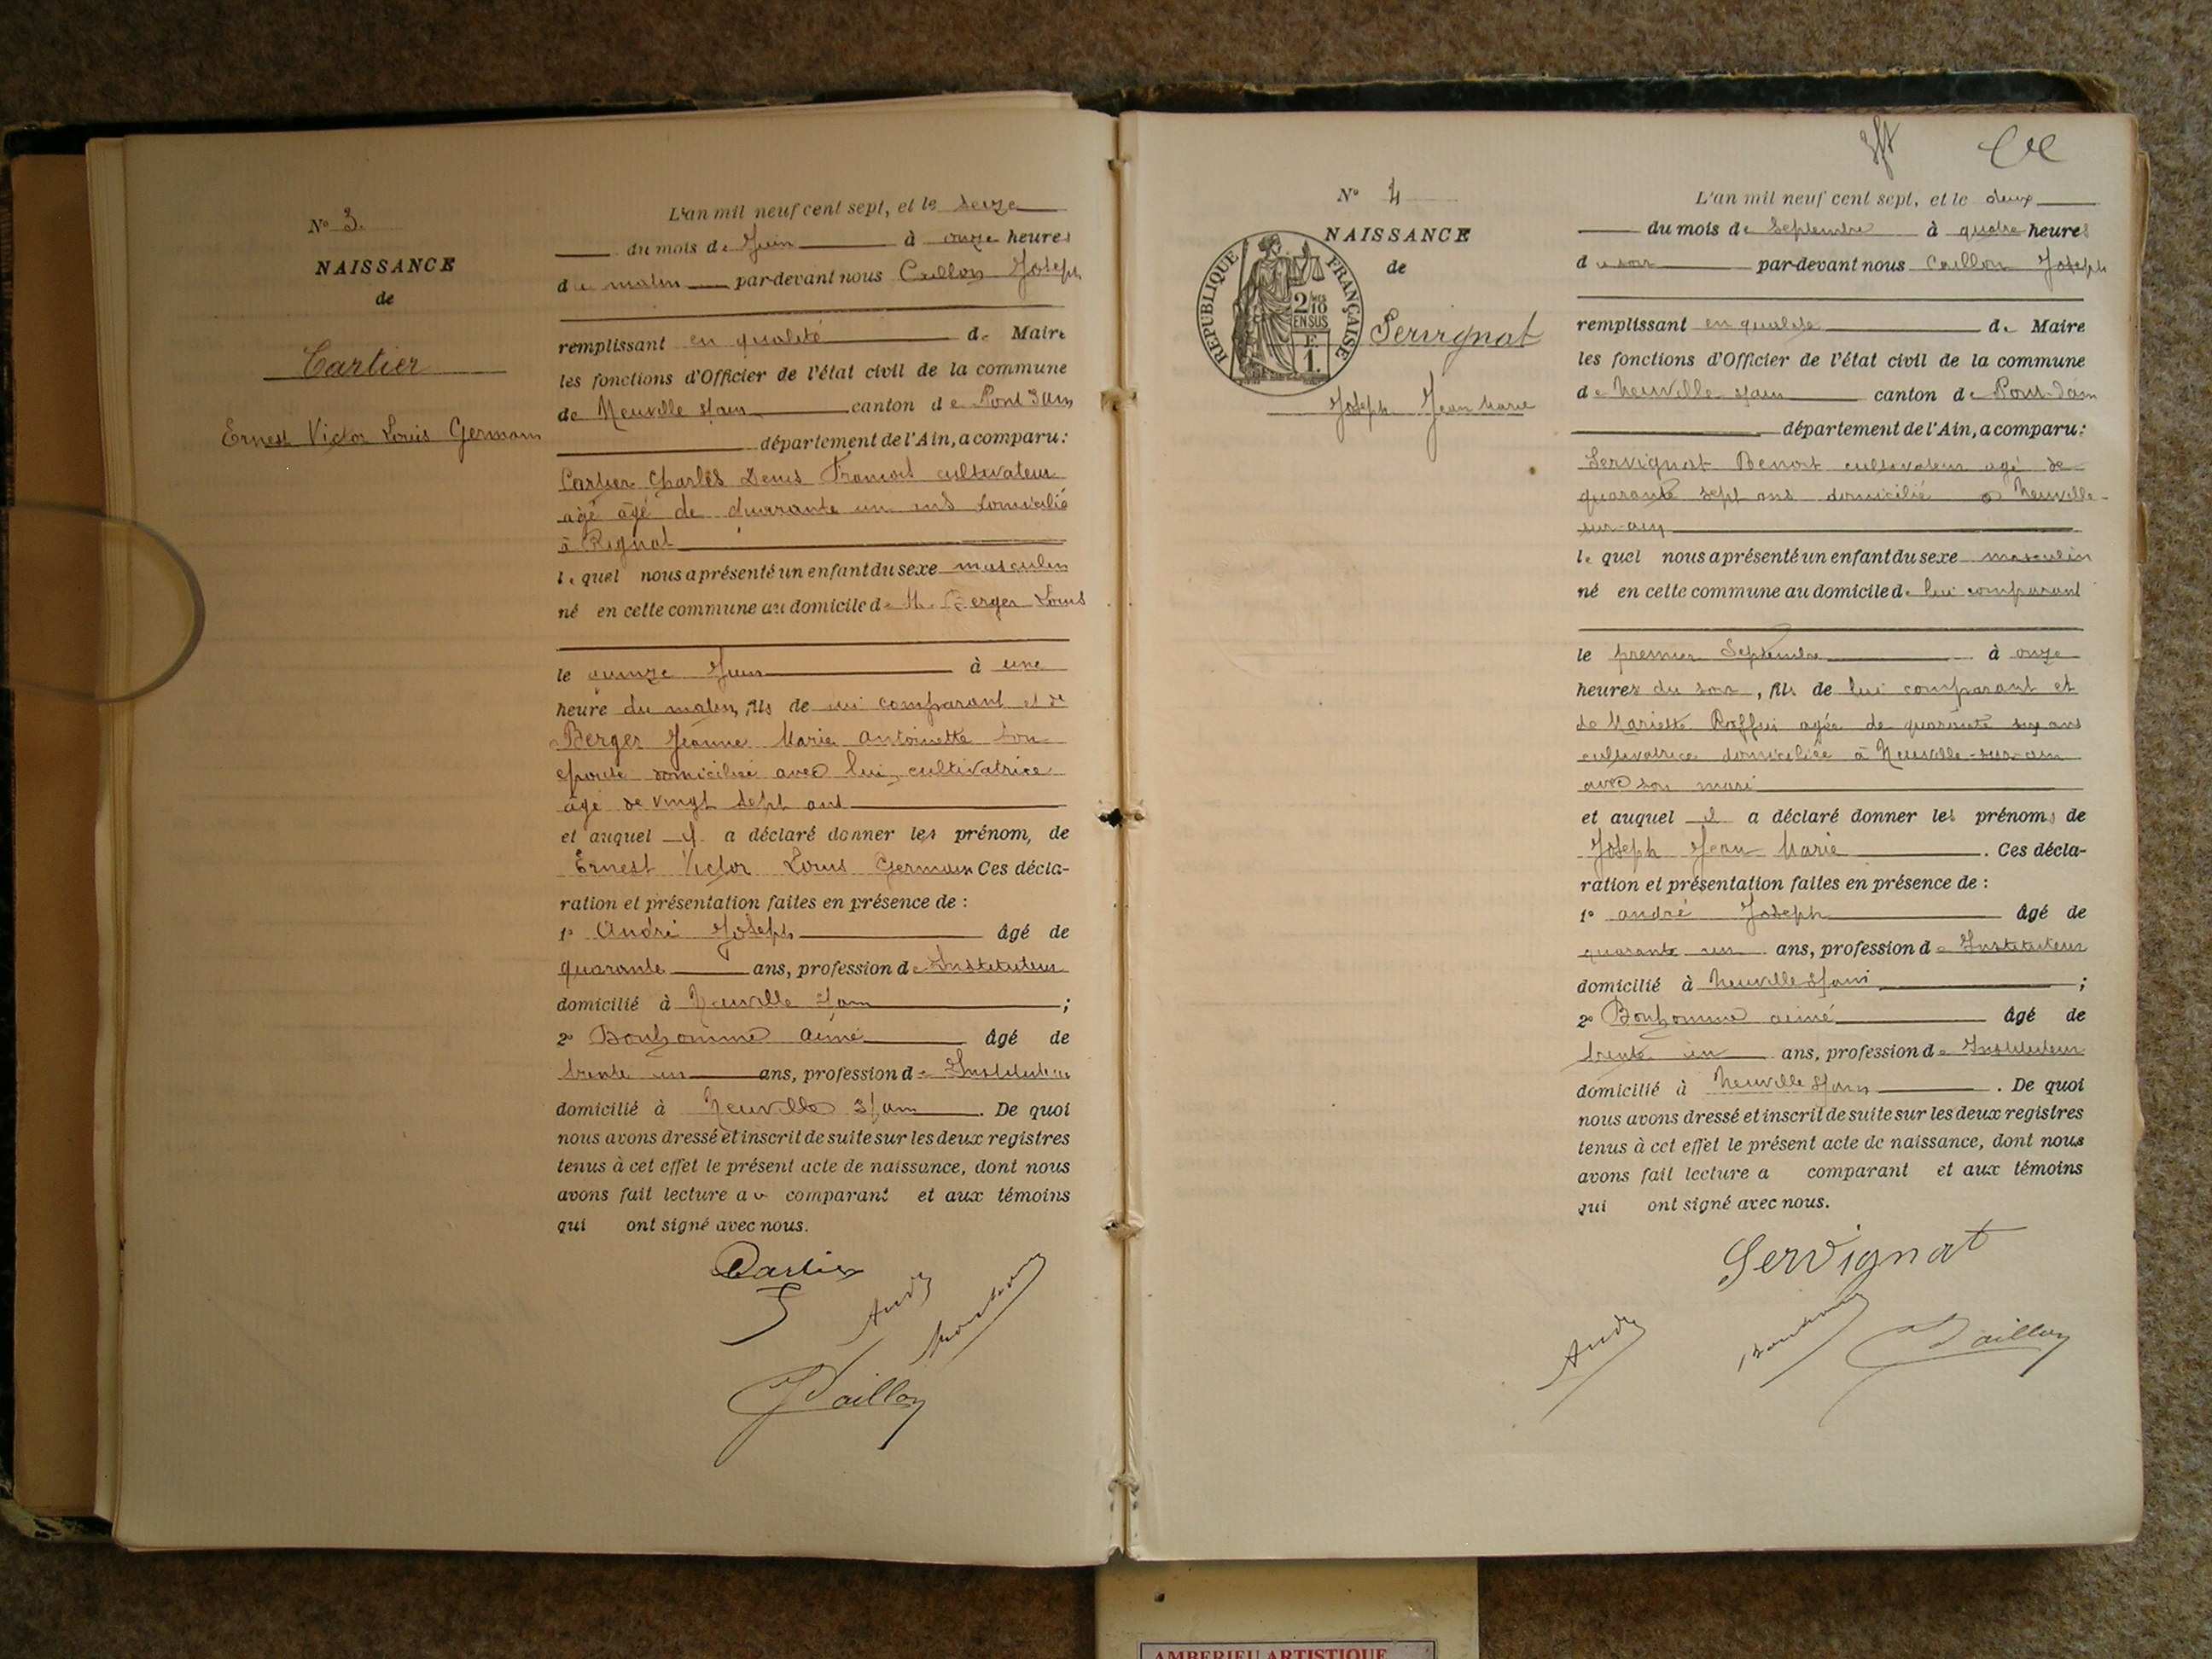 N° 3.
NAISSANCE
de
Cartier
Ernest Victor Louis Germain
L'an mil neuf cent sept, et le seize
du mois de Juin à onze heures
du matin par-devant nous Caillon Joseph
remplissant en qualité de Maire
les fonctions d'Officier de l'état civil de la commune
de Neuville s/ain canton de Pont d'ain
département de l'Ain, a comparu:
Cartier Charles Denis François cultivateur
âgé âgé de quarante un ans domicilié
à Rignat
le quel nous a présenté un enfant du sexe masculin
né en cette commune au domicile de M. Berger Louis
le quinze Juin à une
heure du matin, fils de lui comparant et de
Berger Jeanne Marie antoinette son
epouse domiciliée avec lui, cultivatrice
âgé de vingt sept ans
et auquel il a déclaré donner les prénom, de
Ernest Victor Louis Germain Ces décla-
ration et présentation faites en présence de :
1° André Joseph âgé de
quarante ans, profession de Instituteur
domicilié à Neuville s/ain ;
2° Bonhomme aimé âgé de
trente un ans, profession de Instituteur
domicilié à Neuville s/ain . De quoi
nous avons dressé et inscrit de suite sur les deux registres
tenus à cet effet le présent acte de naissance, dont nous
avons fait lecture au comparant et aux témoins
qui ont signé avec nous.
Cartier
André
Bonhomme
Caillon
N° 4
NAISSANCE
de
RÉPUBLIQUE FRANÇAISE
2/10
EN SUS
F.
1.
Servignat
Joseph Jean Marie
L'an mil neuf cent sept, et le deux
du mois de Septembre à quatre heures
du soir par-devant nous Caillon Joseph
remplissant en qualité de Maire
les fonctions d'Officier de l'état civil de la commune
de Neuville s/ain canton de Pont-d'ain
département de l'Ain, a comparu:
Servignat Benoit cultivateur agé de
quarante sept ans domicilié à Neuville-
sur-ain
le quel nous a présenté un enfant du sexe masculin
né en cette commune au domicile de lui comparant
le premier Septembre à onze
heures du soir, fils de lui comparant et
de Mariette agée de quarante six ans
cultivatrice domiciliée à Neuville-sur-ain
avec son mari
et auquel il a déclaré donner les prénoms de
Joseph Jean Marie . Ces décla-
ration et présentation faites en présence de :
1° andré Joseph âgé de
quarante un ans, profession de Instituteur
domicilié à Neuville s/ain ;
2° Bonhomme aimé âgé de
trente un ans, profession de Instituteur
domicilié à Neuville s/ain . De quoi
nous avons dressé et inscrit de suite sur les deux registres
tenus à cet effet le présent acte de naissance, dont nous
avons fait lecture a comparant et aux témoins
qui ont signé avec nous.
Servignat
André
Bonhomme
Caillon
AMBERIEU ARTISTIQUE